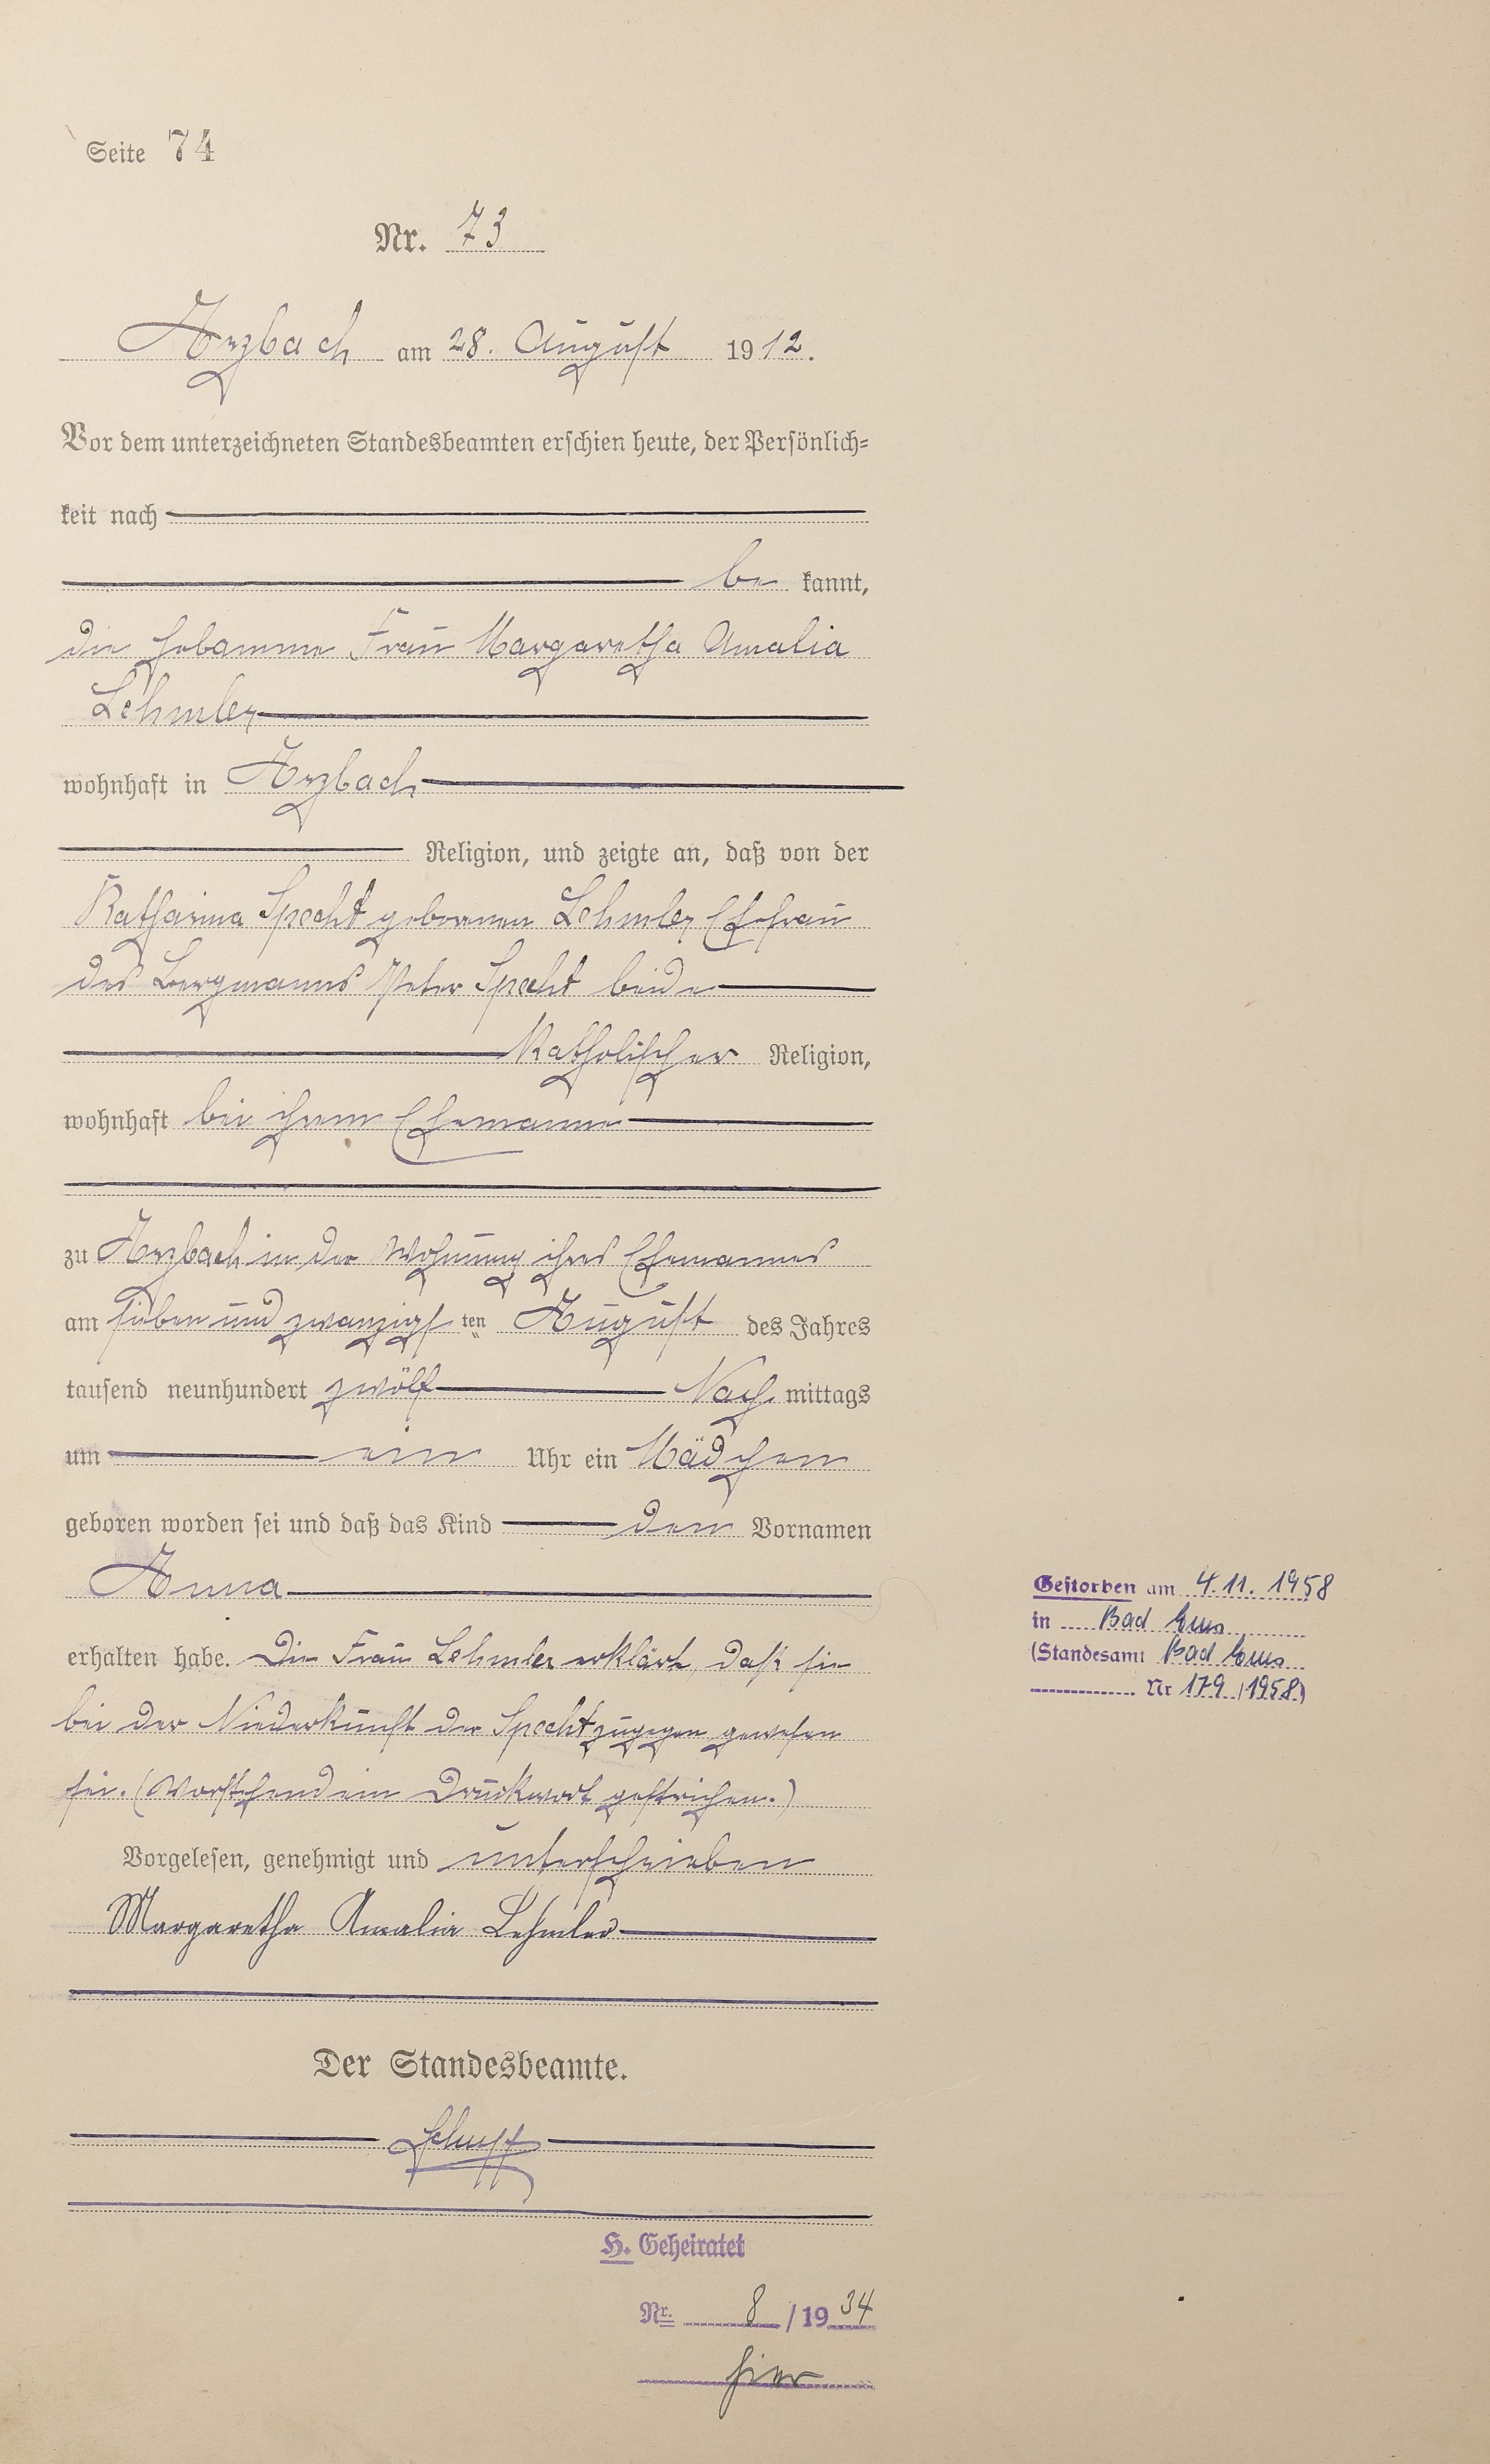 Seite 74
Nr. 73
Arzbach am 28. August 1912.
Vor dem unterzeichneten Standesbeamten erschien heute, der Persönlich-
keit nach
be kannt,
die Hebamme Frau Margaretha Amalia
Lehmler
wohnhaft in Arzbach
Religion, und zeigte an, daß von der
Katharina Specht geborenen Lehmler Ehefrau
des Bergmanns Peter Specht beide
Katholischer Religion,
wohnhaft bei ihrem Ehemanne
zu Arzbach in der Wohnung ihres Ehemannes
am sieben und zwanzigsten August des Jahres
tausend neunhundert zwölf Nach mittags
um ein Uhr ein Mädchen
geboren worden sei und daß das Kind den Vornamen
Anna
erhalten habe. Die Frau Lehmler erklärte, daß sie
bei der Niederkunft der Specht zugegen gewesen
sei. (Vorstehend ein Druckwort gestrichen.)
Vorgelesen, genehmigt und unterschrieben
Margaretha Amalia Lehmler
Der Standesbeamte.
Schupp
H. Geheiratet
Nr. 8 / 1934
hier
Gestorben am 4.11.1958
in Bad Ems
(Standesamt Bad Ems
Nr 179 / 1958)